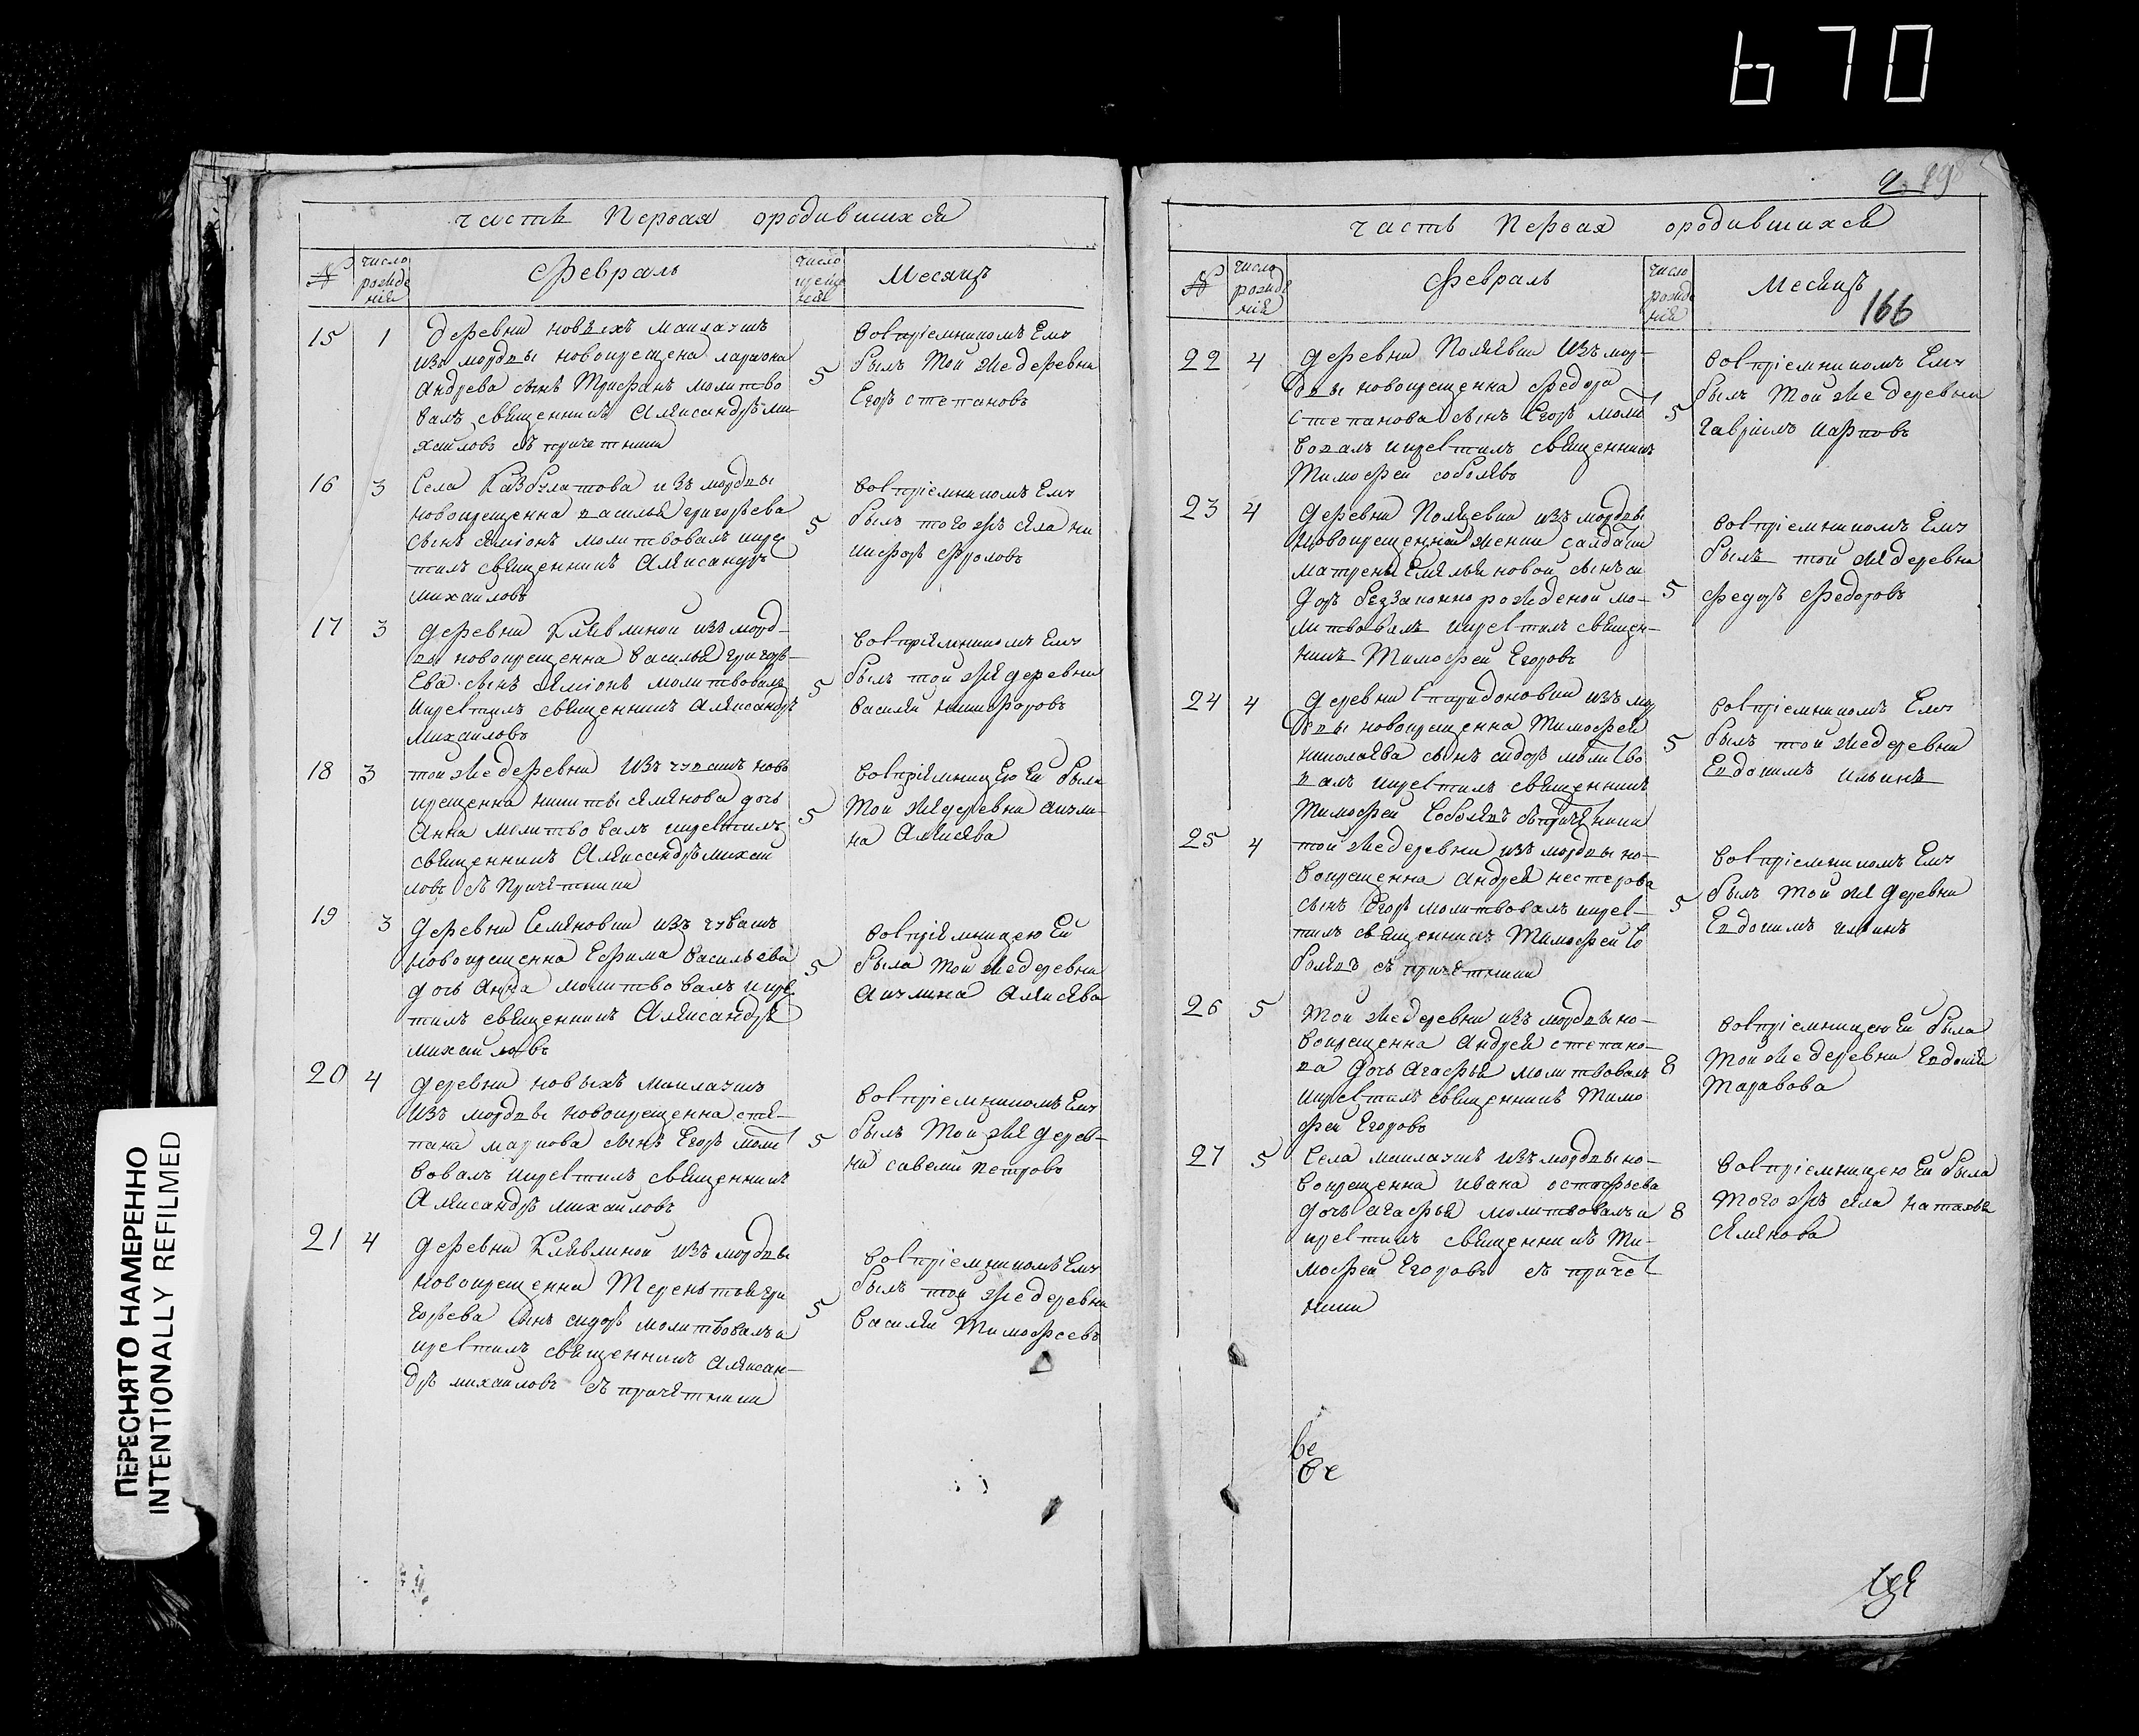 670
часть Первая ородившихся
№
число рожде нія
Февраль
число креще нія
Месяцъ
15 1
деревни новыхъ маклаушъ
изъ мордвы новокрещена лариона
Андреева сынъ Трифанъ молитво
валъ священникъ Александръ ми
хаиловъ съ причетники
5
воспріемникомъ Ему
былъ той же деревни
Егоръ степановъ
16 3
Села Казбулатова изъ мордвы
новокрещенна василья григорьева
сынъ семіонъ молитвовалъ и крес
тилъ священникъ Александръ
михаиловъ
5
воспріемникомъ Ему
былъ того жъ села ни
кифоръ Фроловъ
17 3
деревни Клявлиной изъ морд-
вы новокрещенна василья григорь-
Ева сынъ семіонъ молитвовалъ
икрестилъ священникъ Александръ
михаиловъ
5
воспріемникомъ Ему
былъ той же деревни
василей никифоровъ
18 3
той же деревни Изъ чувашъ ново
крещенна никиты семенова дочь
Анна молитвовалъ икрестилъ
священникъ Александръ михаи
ловъ съ Причетники
5
воспріемницею Ей была
той же деревни акули-
на Алексева
19 3
деревни Семеновки изъ чувашъ
новокрещенна Ефима Васильева
дочь Анна молитвовалъ икрес
тилъ священникъ Александръ
михаиловъ
5
воспріемницею Ей
была той же деревни
Акулина Алексева
20 4
деревни новыхъ маклаушъ
Изъ мордвы новокрещенна сте-
пана маркова сынъ Егоръ молит
вовалъ икрестилъ священникъ
Александръ михаиловъ
5
воспріемникомъ Ему
былъ Той же дерев-
ни савели петровъ
21 4
деревни Клявлиной изъ мордвы
новокрещенна Терентья гри
горьева сынъ сидоръ молитвовалъ и
крестилъ священникъ Алексан-
дръ михаиловъ съ причетники
5
воспріемникомъ Ему
былъ той же деревни
Василей Тимофеевъ
часть Первая ородившихся
№
число рожде нія
Февраль
число рожде нія
Месяцъ
166
22 4
деревни Поляевки Изъ мор-
двы новокрещенна федора
степанова сынъ Егоръ молит
вовалъ икрестилъ священникъ
Тимофей соболевъ
5
воспріемникомъ Ему
былъ той же деревни
Гавріилъ карповъ
23 4
деревни Поляевки изъ мордвы
Новокрещенной женки салдатки
матрены Емельяновой сынъ си
доръ беззаконно рожденой мо-
литвовалъ икрестилъ священ-
никъ Тимофей Егоровъ
5
воспріемникомъ Ему
былъ той же деревни
федоръ Федоровъ
24 4
деревни Спиридоновки изъ мор
двы новокрещенна Тимофея
николаева сынъ сидоръ молитво
валъ икрестилъ священникъ
Тимофей Соболевъ съ причетники
5
воспріемникомъ Ему
былъ той же деревни
Евдокимъ ильинъ
25 4
той же деревни изъ мордвы но-
вокрещенна Андрея нестерова
сынъ Егоръ молитвовалъ икрес-
тилъ священникъ Тимофей Со
болевъ съ причетники
5
воспріемникомъ Ему
былъ той же деревни
Евдокимъ ильинъ
26 5
Той же деревни изъ мордвы но-
вокрещенна Андрея степано-
ва дочь Агафья молитвовалъ
икрестилъ священникъ Тимо
фей Егоровъ
8
воспріемницею Ей была
той же деревни Евдокія
Таравова
27 5
Села маклаушъ изъ мордвы но-
вокрещенна Ивана остафьева
дочь агафья молитвовалъ и
крестилъ священникъ Ти-
мофей Егоровъ съ причет
ники
8
воспріемницею Ей была
того жъ села наталья
Семенова
ПЕРЕСНЯТО НАМЕРЕННО
INTENTIONALLY REFILMED